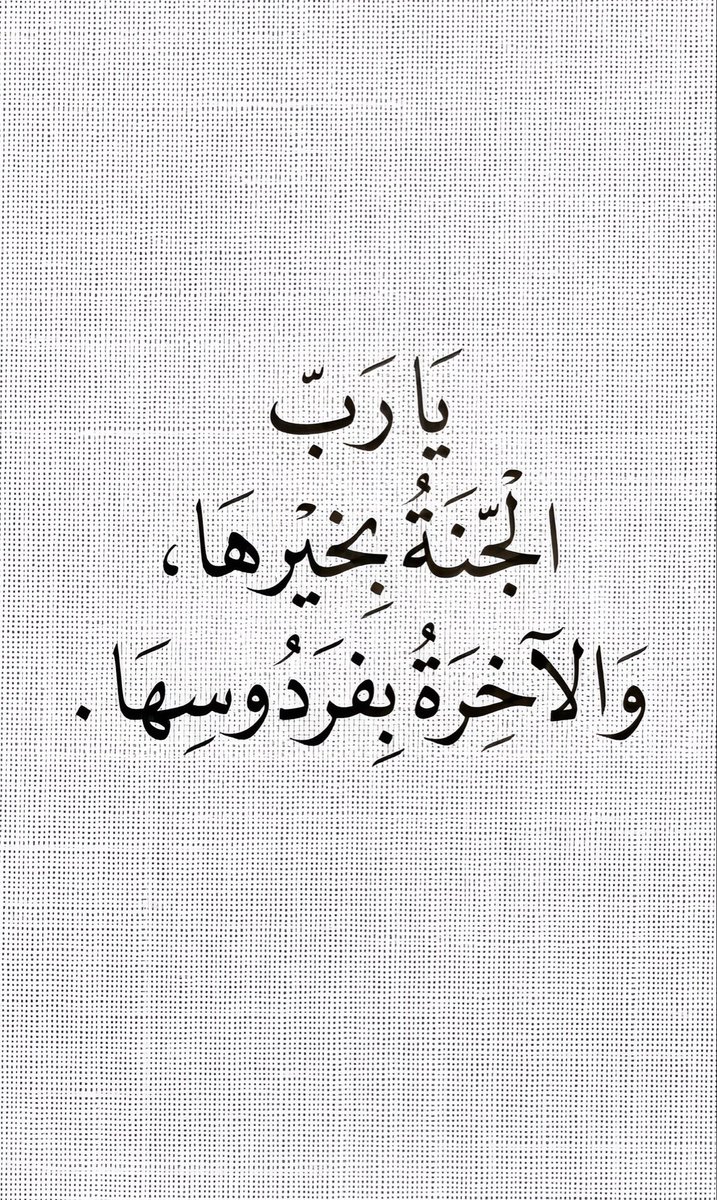 يَا رَبّ
الْجّنَةُ بِخيْرهَا،
وَالآخِرَةُ بِفرَدُوسِهَا.